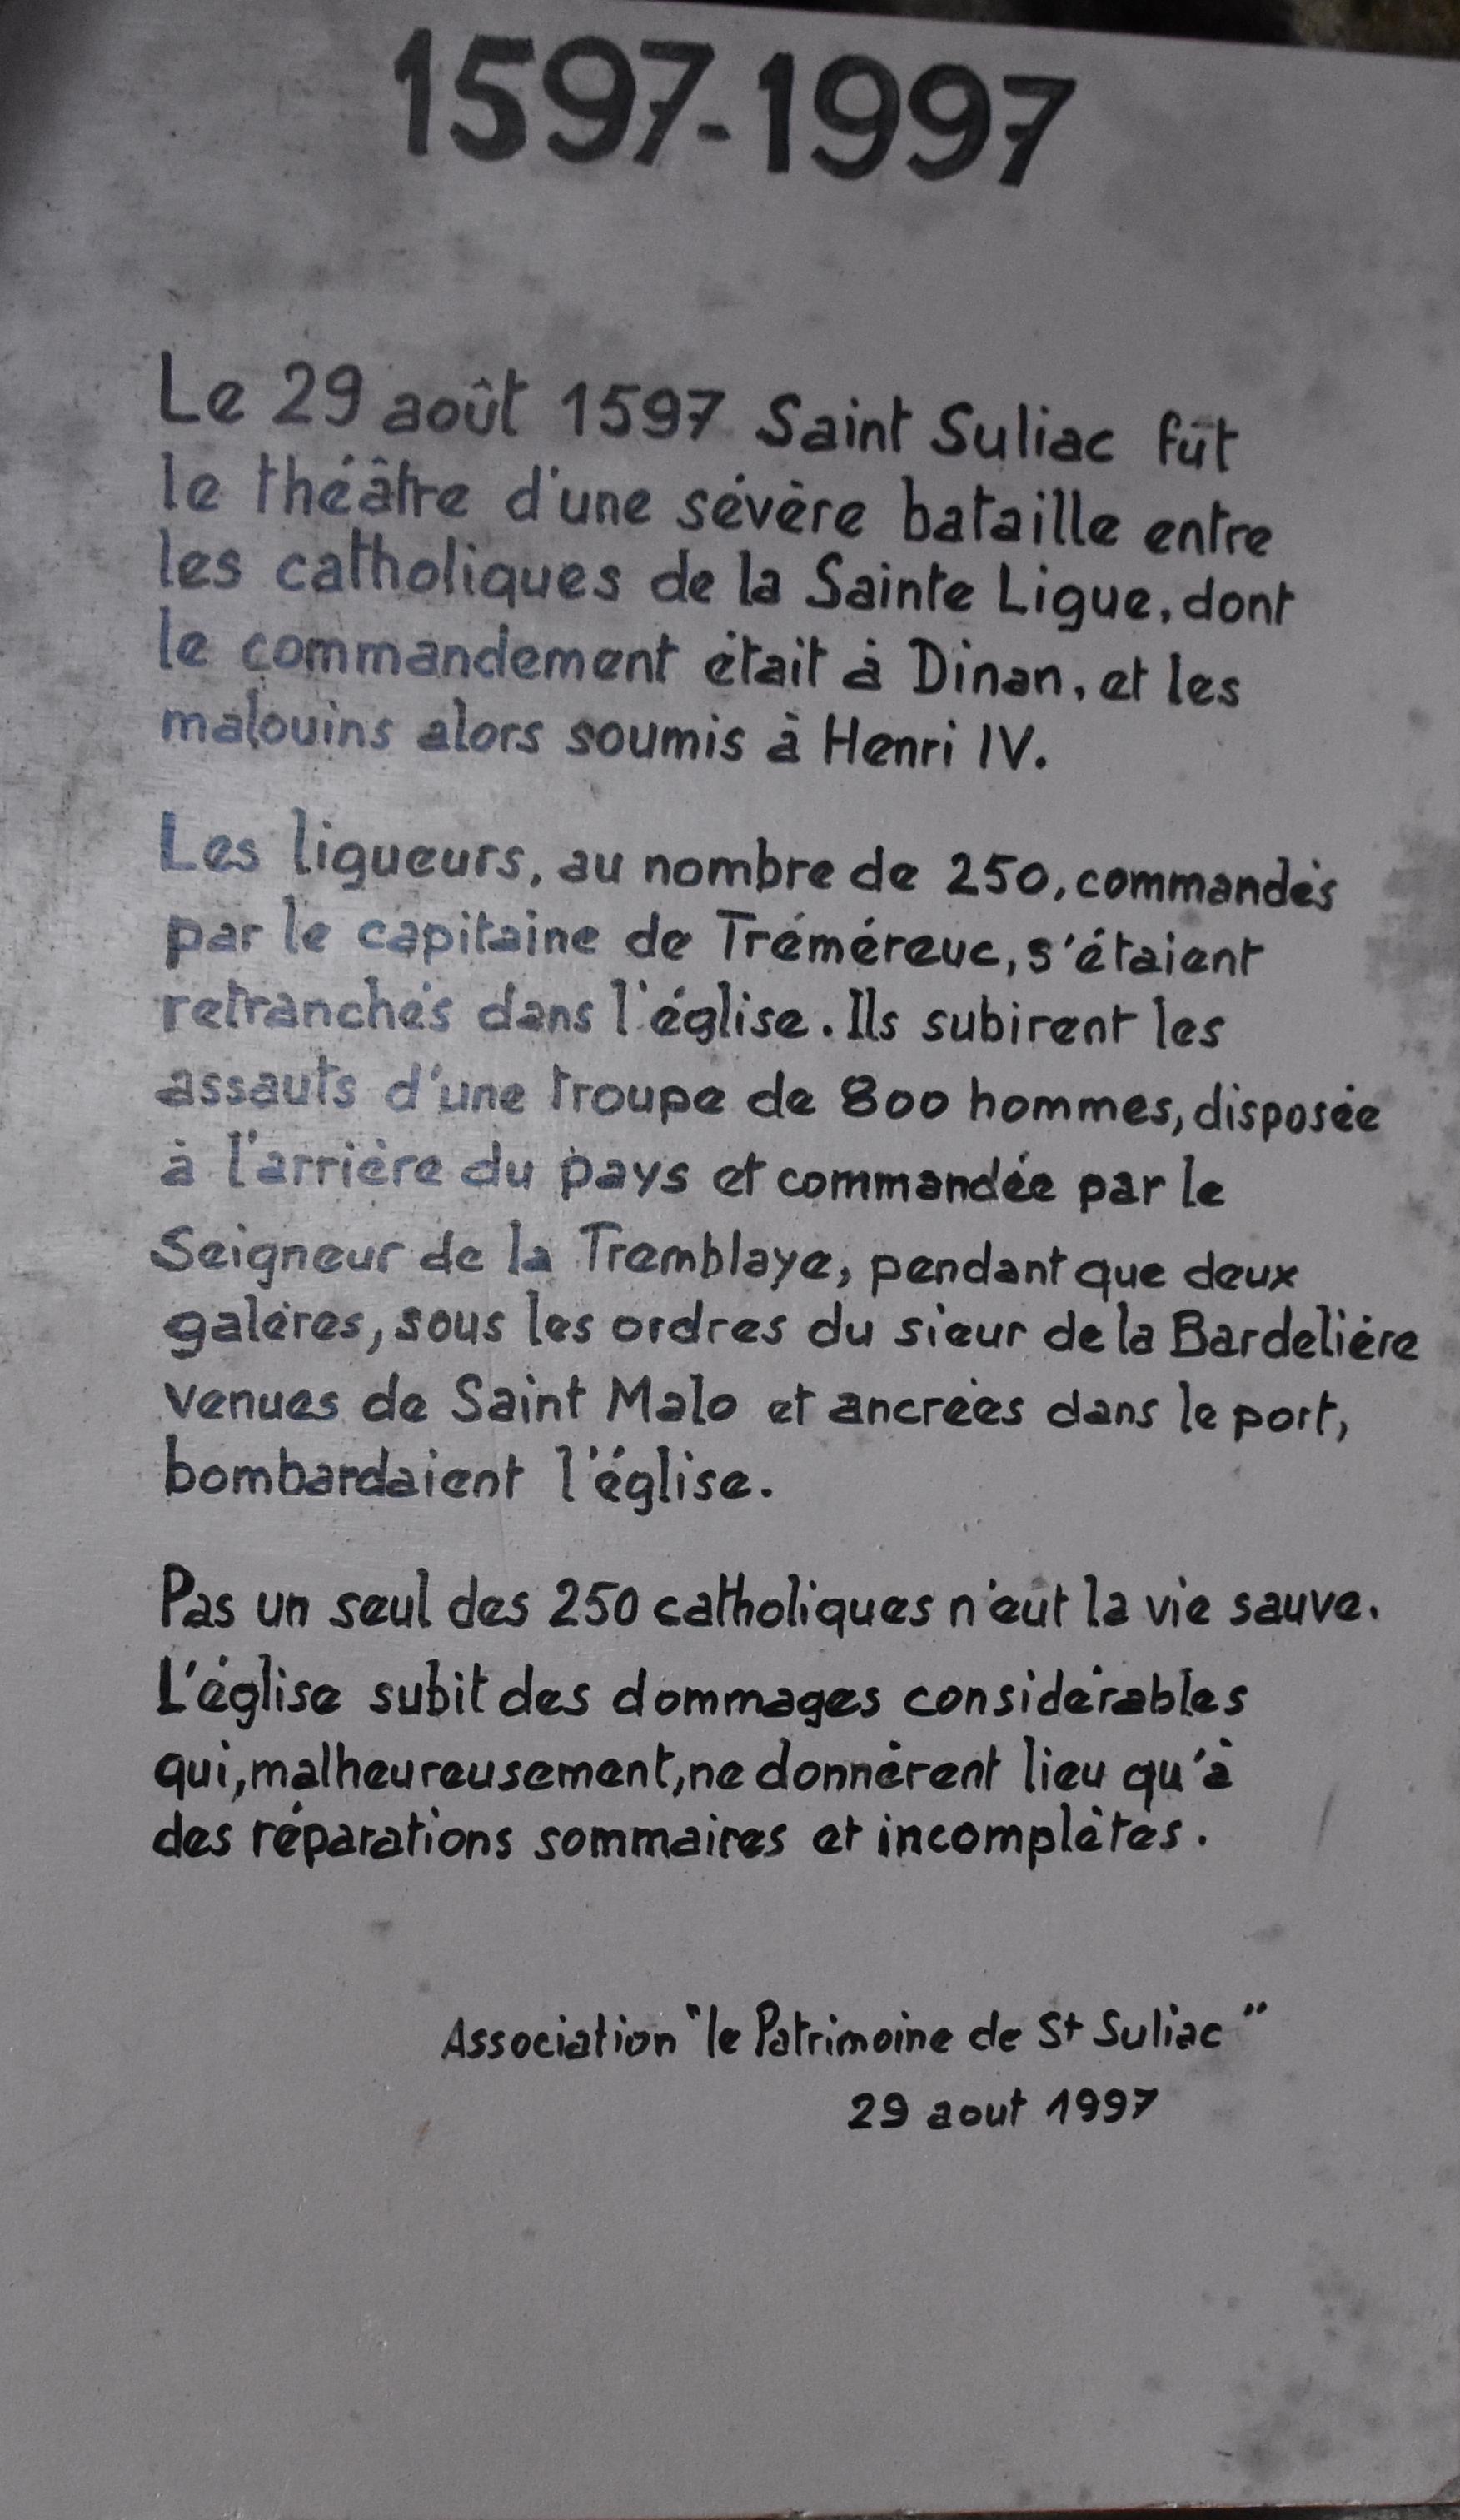 1597-1997
Le 29 août 1597 Saint Suliac fût
le théâtre d'une sévère bataille entre
les catholiques de la Sainte Ligue, dont
le commandement était à Dinan, et les
malouins alors soumis à Henri IV.
Les ligueurs, au nombre de 250, commandés
par le capitaine de Tréméreuc, s'étaient
retranchés dans l'église. Ils subirent les
assauts d'une troupe de 800 hommes, disposée
à l'arrière du pays et commandée par le
Seigneur de la Tremblaye, pendant que deux
galères, sous les ordres du sieur de la Bardelière
venues de Saint Malo et ancrées dans le port,
bombardaient l'église.
Pas un seul des 250 catholiques n'eut la vie sauve.
L'église subit des dommages considérables
qui, malheureusement, ne donnèrent lieu qu'à
des réparations sommaires et incomplètes.
Association "le Patrimoine de St Suliac"
29 aout 1997